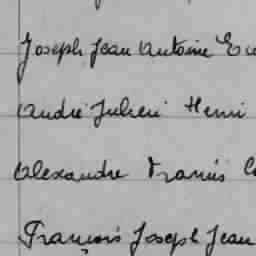 Joseph Jean Antoine
André Julien Henri
Alexandre Francis
François Joseph Jean